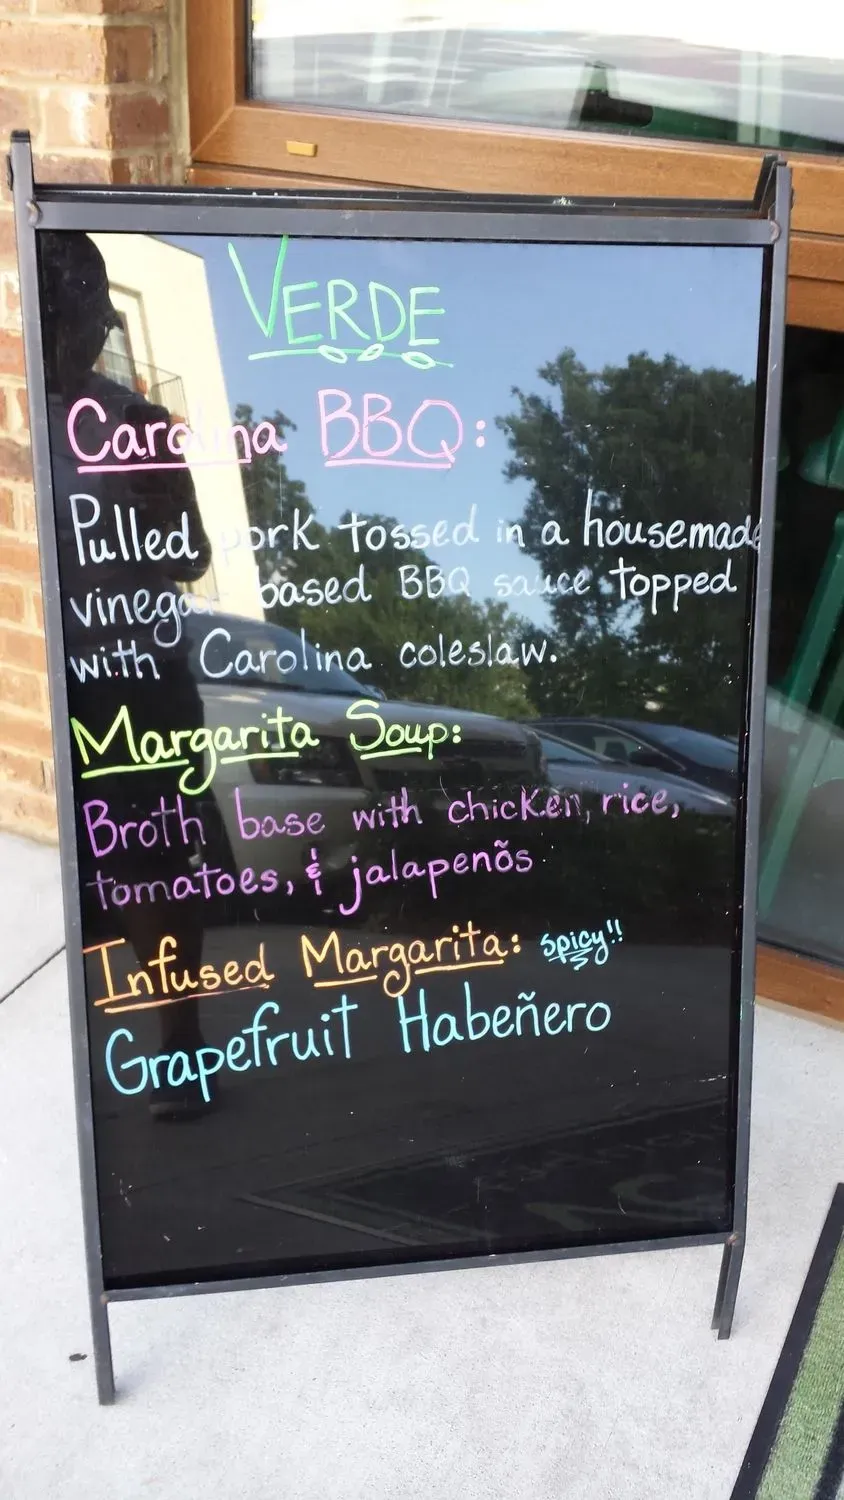 VERDE
Carolina BBQ:
Pulled pork tossed in a housemade
vinegar based BBQ sauce topped
with Carolina coleslaw.
Margarita Soup:
Broth base with chicken, rice,
tomatoes, & jalapenõs
Infused Margarita: spicy!!
Grapefruit Habeñero